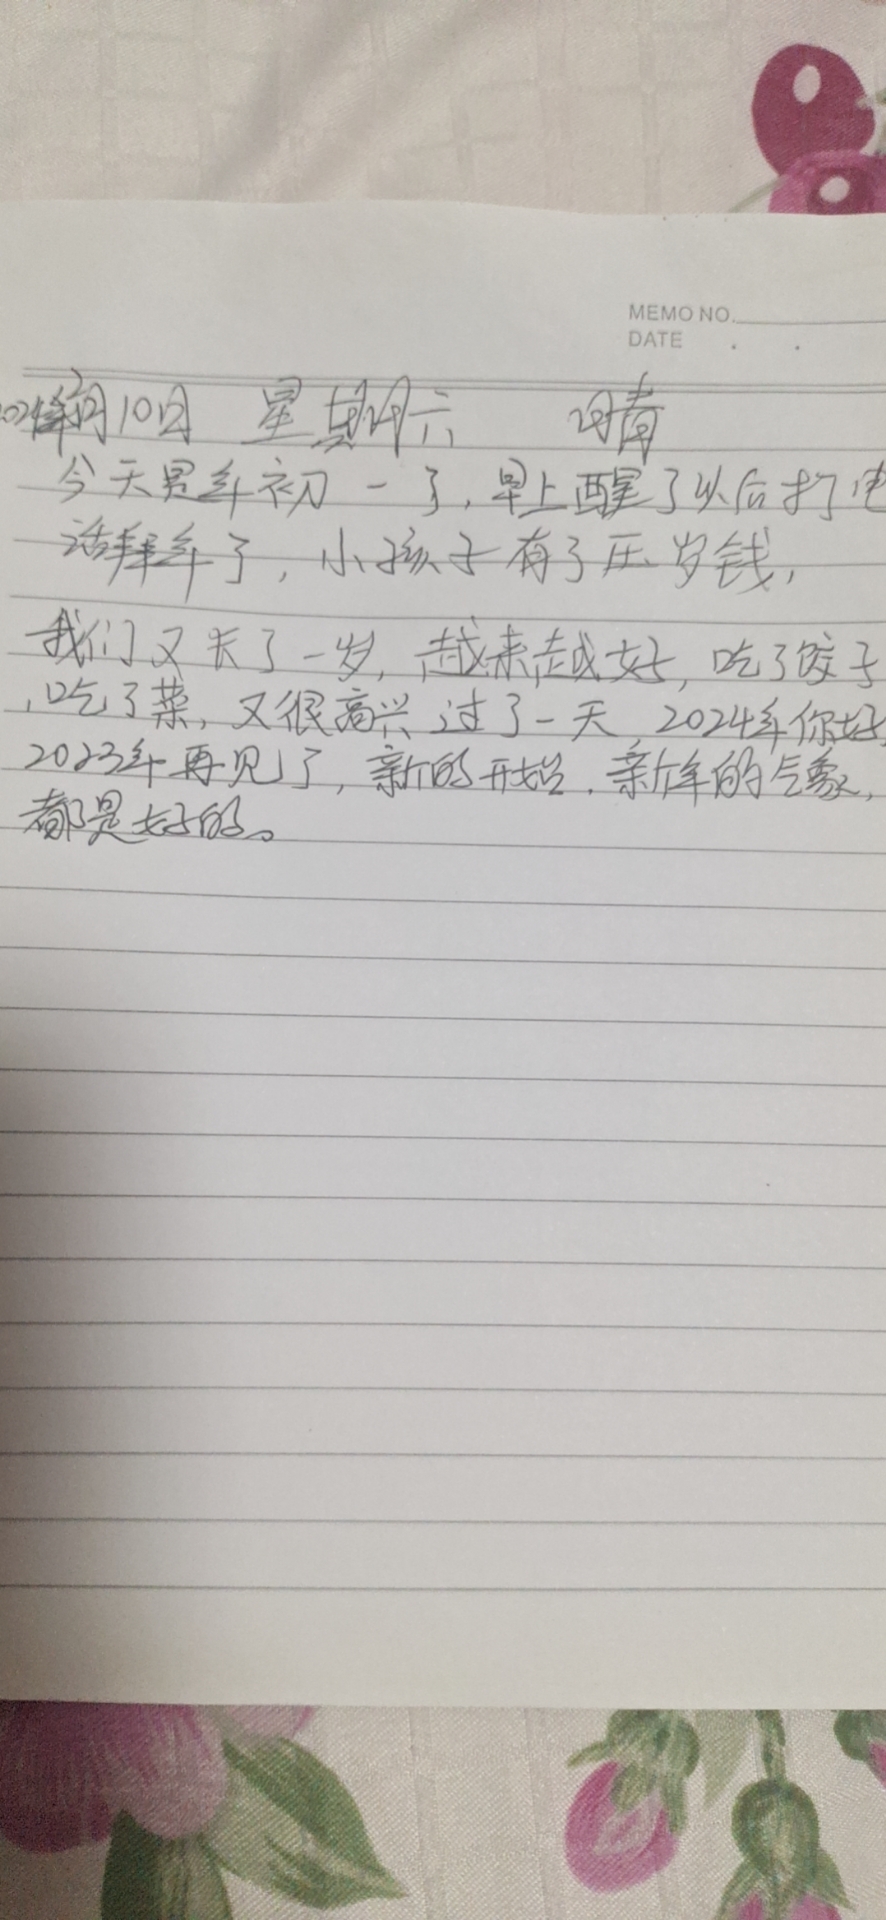 MEMO NO.
DATE . .
2024年2月10日 星期六 晴
今天是年初一了,早上醒了以后打电
话拜年了,小孩子有了压岁钱,
我们又长了一岁,越来越好,吃了饺子
,吃了菜,又很高兴过了一天,2024年你好,
2023年再见了,新的开始.新年的气象,
都是好的。